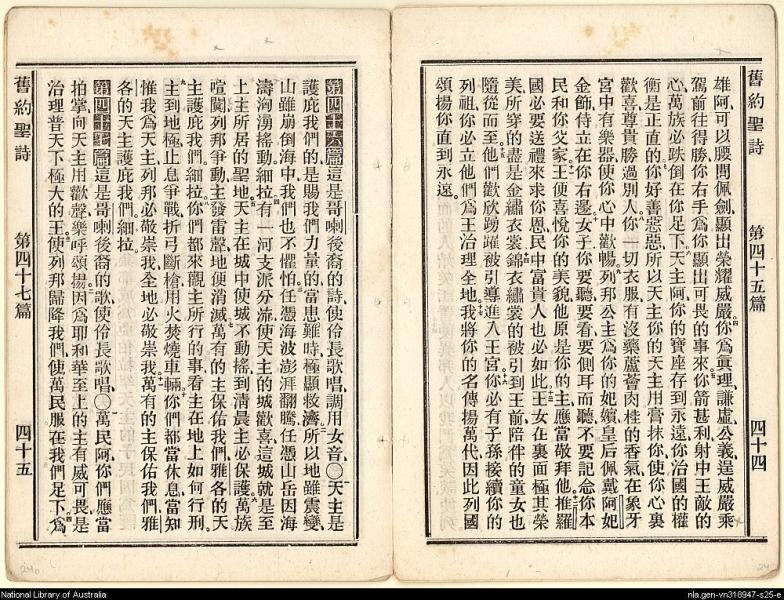 舊約聖詩 第四十五篇 四十四
雄阿可以腰間佩劍顯出榮耀威嚴你爲眞理謙虛公義逞威嚴乘
駕前往得勝你右手爲你顯出可畏的事來你箭甚利射中王敵的
心萬族必跌倒在你足下天主阿你的寶座存到永遠你治國的權
衡是正直的你好善惡惡所以天主你的天主用膏抹你使你心裏
歡喜尊貴勝過別人你一切衣服有沒藥蘆薈肉桂的香氣在象牙
宮中有樂器使你心中歡暢列邦公主爲你的妃嬪皇后佩戴阿妃
金飾侍立在你右邊女子你要聽要看要側耳而聽不要記念你本
民和你父家王便喜悅你的美貌他原是你的主應當敬拜他推羅
國必要送禮來求你恩民中富貴人也必如此王女在裏面極其榮
美所穿的盡是金繡衣裳錦衣繡裳的被引到王前陪伴的童女也
隨從而至他們歡欣踴躍被引導進入王宮你必有子孫接續你的
列祖你必立他們爲王治理全地我將你的名傳揚萬代因此列國
頌揚你直到永遠
第四十六篇這是哥喇後裔的詩使伶長歌唱調用女音〇天主是
護庇我們的是賜我們力量的當患難時極顯救濟所以地雖震變
山雖崩倒海中我們也不懼怕任憑海波澎湃翻騰任憑山岳因海
濤洶湧搖動細拉有一河支派分流使天主的城歡喜這城就是至
上主所居的聖地天主在城中使城不動搖到清晨主必保護萬族
喧闐列邦爭動主發雷聲地便消滅萬有的主保佑我們雅各的天
主護庇我們細拉你們都來觀主所行的事看主在地上如何行刑
主到地極止息爭戰折弓斷槍用火焚燒車輛你們都當休息當知
惟我爲天主列邦必敬崇我全地必敬崇我萬有的主保佑我們雅
各的天主護庇我們細拉
第四十七篇這是哥喇後裔的歌使伶長歌唱〇萬民阿你們應當
拍掌向天主用歡聲樂呼頌揚因爲耶和華至上的主有威可畏是
治理普天下極大的王使列邦歸降我們使萬民服在我們足下爲
舊約聖詩 第四十七篇 四十五
National Library of Australia
nla.gen-vn318947-s25-e